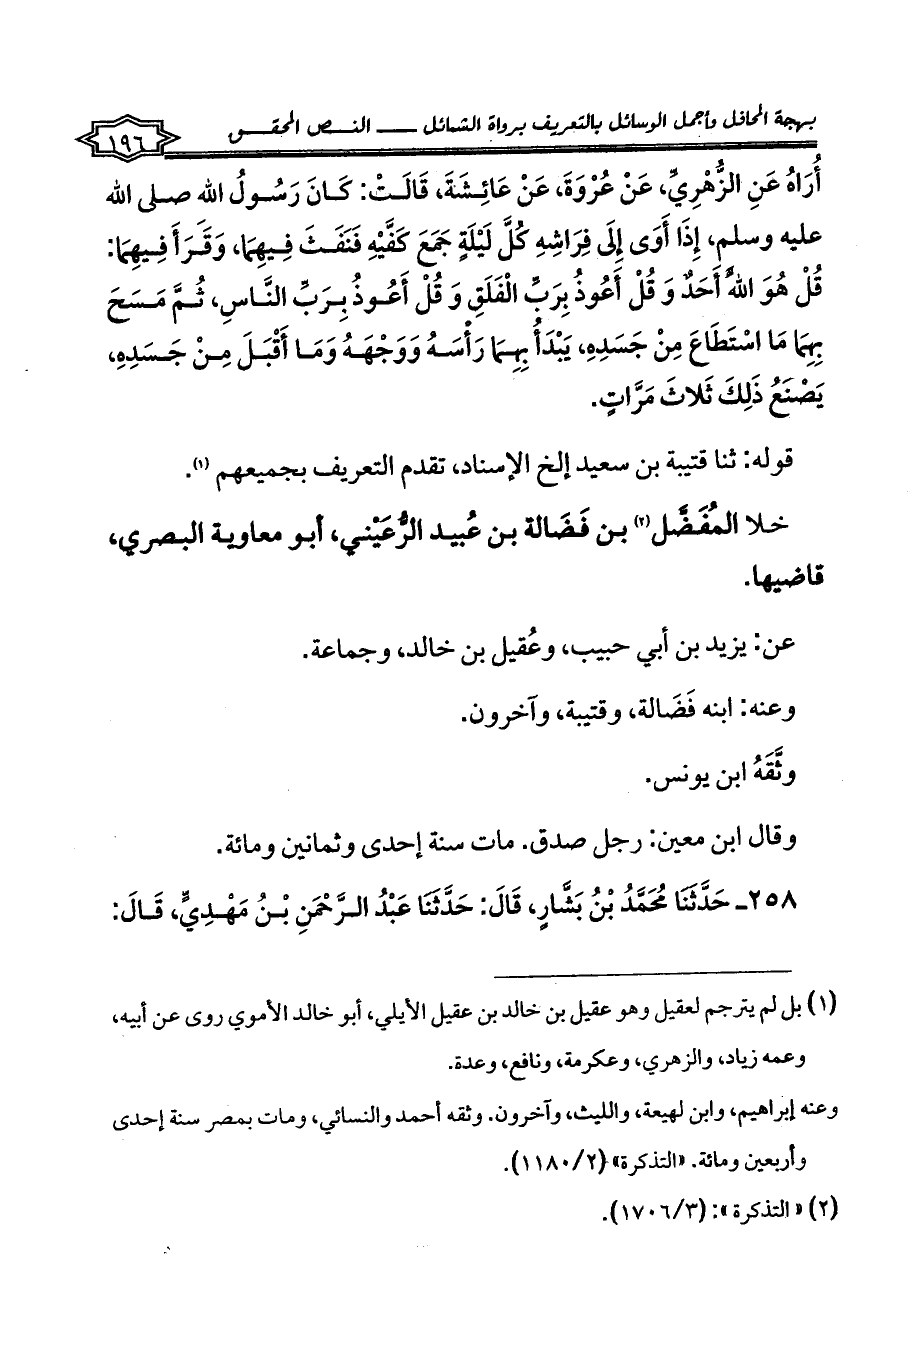 بهجة المحافل وأجمل الوسائل بالتعريف برواة الشمائل ــــ النــص المحقــق
١٩٦
أُرَاهُ عَنِ الزُّهْرِيِّ، عَنْ عُرْوَةَ، عَنْ عَائِشَةَ، قَالَتْ: كَانَ رَسُولُ الله صلى الله
عليه وسلم، إِذَا أَوَى إِلَى فِرَاشِهِ كُلَّ لَيْلَةٍ جَمَعَ كَفَّيْهِ فَنَفَثَ فِيهِمَا، وَقَرَأَ فِيهِمَا:
قُلْ هُوَ اللهُ أَحَدٌ وَ قُلْ أَعُوذُ بِرَبِّ الْفَلَقِ وَ قُلْ أَعُوذُ بِرَبِّ النَّاسِ، ثُمَّ مَسَحَ
بِهِمَا مَا اسْتَطَاعَ مِنْ جَسَدِهِ، يَبْدَأُ بِهِمَا رَأْسَهُ وَوَجْهَهُ وَمَا أَقْبَلَ مِنْ جَسَدِهِ،
يَصْنَعُ ذَلِكَ ثَلاثَ مَرَّاتٍ.
قوله: ثنا قتيبة بن سعيد إلخ الإسناد، تقدم التعريف بجميعهم (١).
خلا المُفَضَّل(٢) بن فَضَالة بن عُبيد الرُّعَيْني، أبو معاوية البصري،
قاضيها.
عن: يزيد بن أبي حبيب، وعُقيل بن خالد، وجماعة.
وعنه: ابنه فَضَالة، وقتيبة، وآخرون.
وثَّقَهُ ابن يونس.
وقال ابن معين: رجل صدق. مات سنة إحدى وثمانين ومائة.
٢٥٨ـ حَدَّثَنَا مُحَمَّدُ بْنُ بَشَّارٍ، قَالَ: حَدَّثَنَا عَبْدُ الرَّحْمَنِ بْنُ مَهْدِيٍّ، قَالَ:
(١) بل لم يترجم لعقيل وهو عقيل بن خالد بن عقيل الأيلي، أبو خالد الأموي روى عن أبيه،
وعمه زياد، والزهري، وعكرمة، ونافع، وعدة.
وعنه إبراهيم، وابن لهيعة، والليث، وآخرون. وثقه أحمد والنسائي، ومات بمصر سنة إحدى
وأربعين ومائة. «التذكرة» (٢/١١٨٠).
(٢) «التذكرة»: (٣/١٧٠٦).